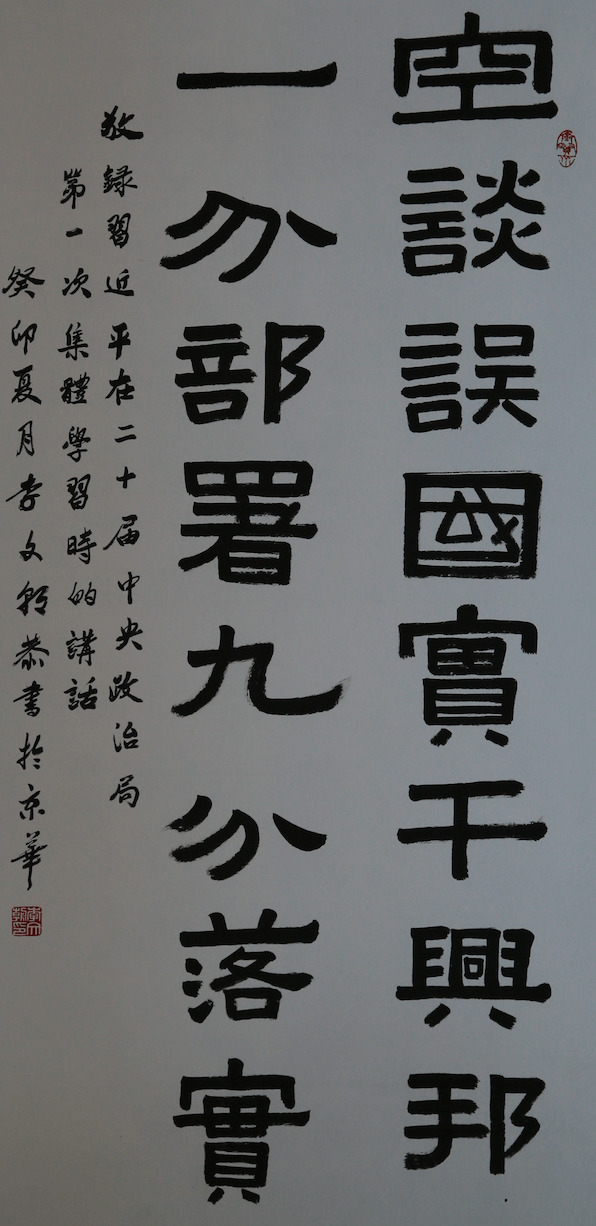 空談誤國實干興邦
一分部署九分落實
敬録習近平在二十届中央政治局
第一次集體學習時的講話
癸卯夏月李文朝恭書於京華
李文朝印